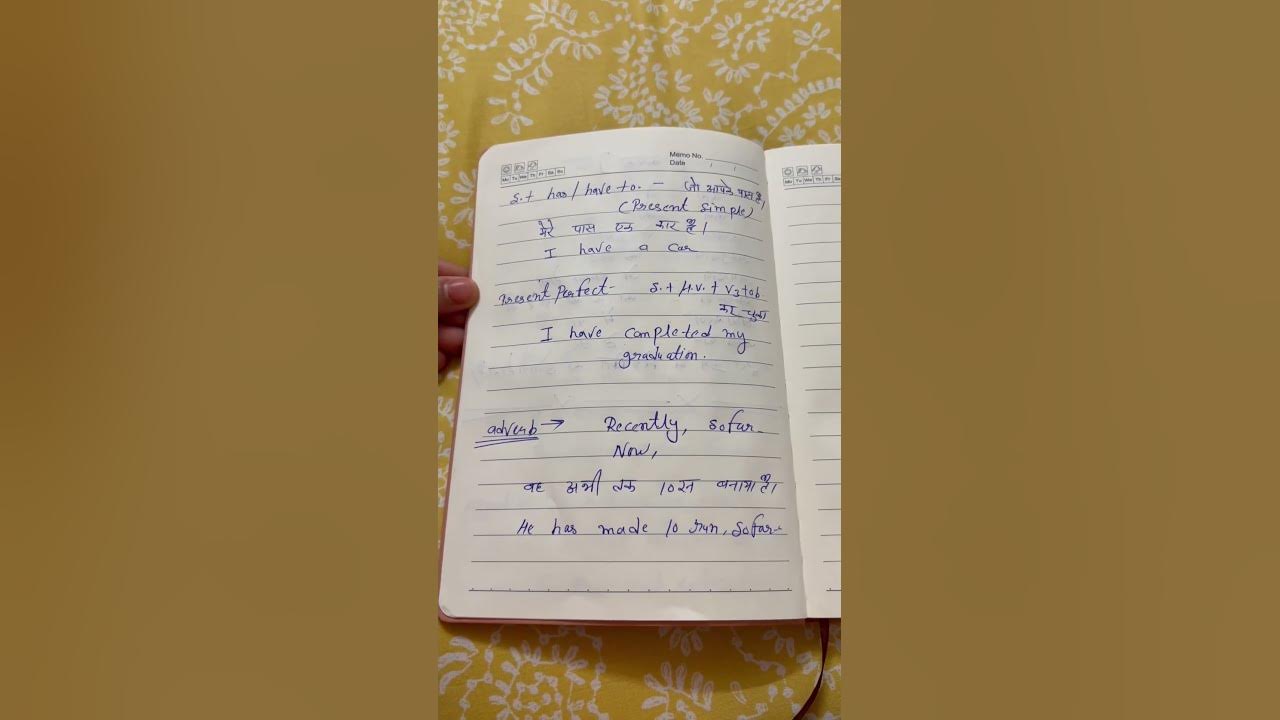 Memo No.
Date
Mo Tu We Th Fr Sa Su
Mo Tu We Th Fr Sa
S.+ has/have to. — जो आपके पास है।
(Present simple)
मेरे पास एक कार है।
I have a car
Present Perfect- S.+ H.V.+ V3+ob.
कर चुका
I have completed my
graduation.
adverb → Recently, sofar-
Now,
वह अभी तक 10 रन बनाया है।
He has made 10 run, sofar-